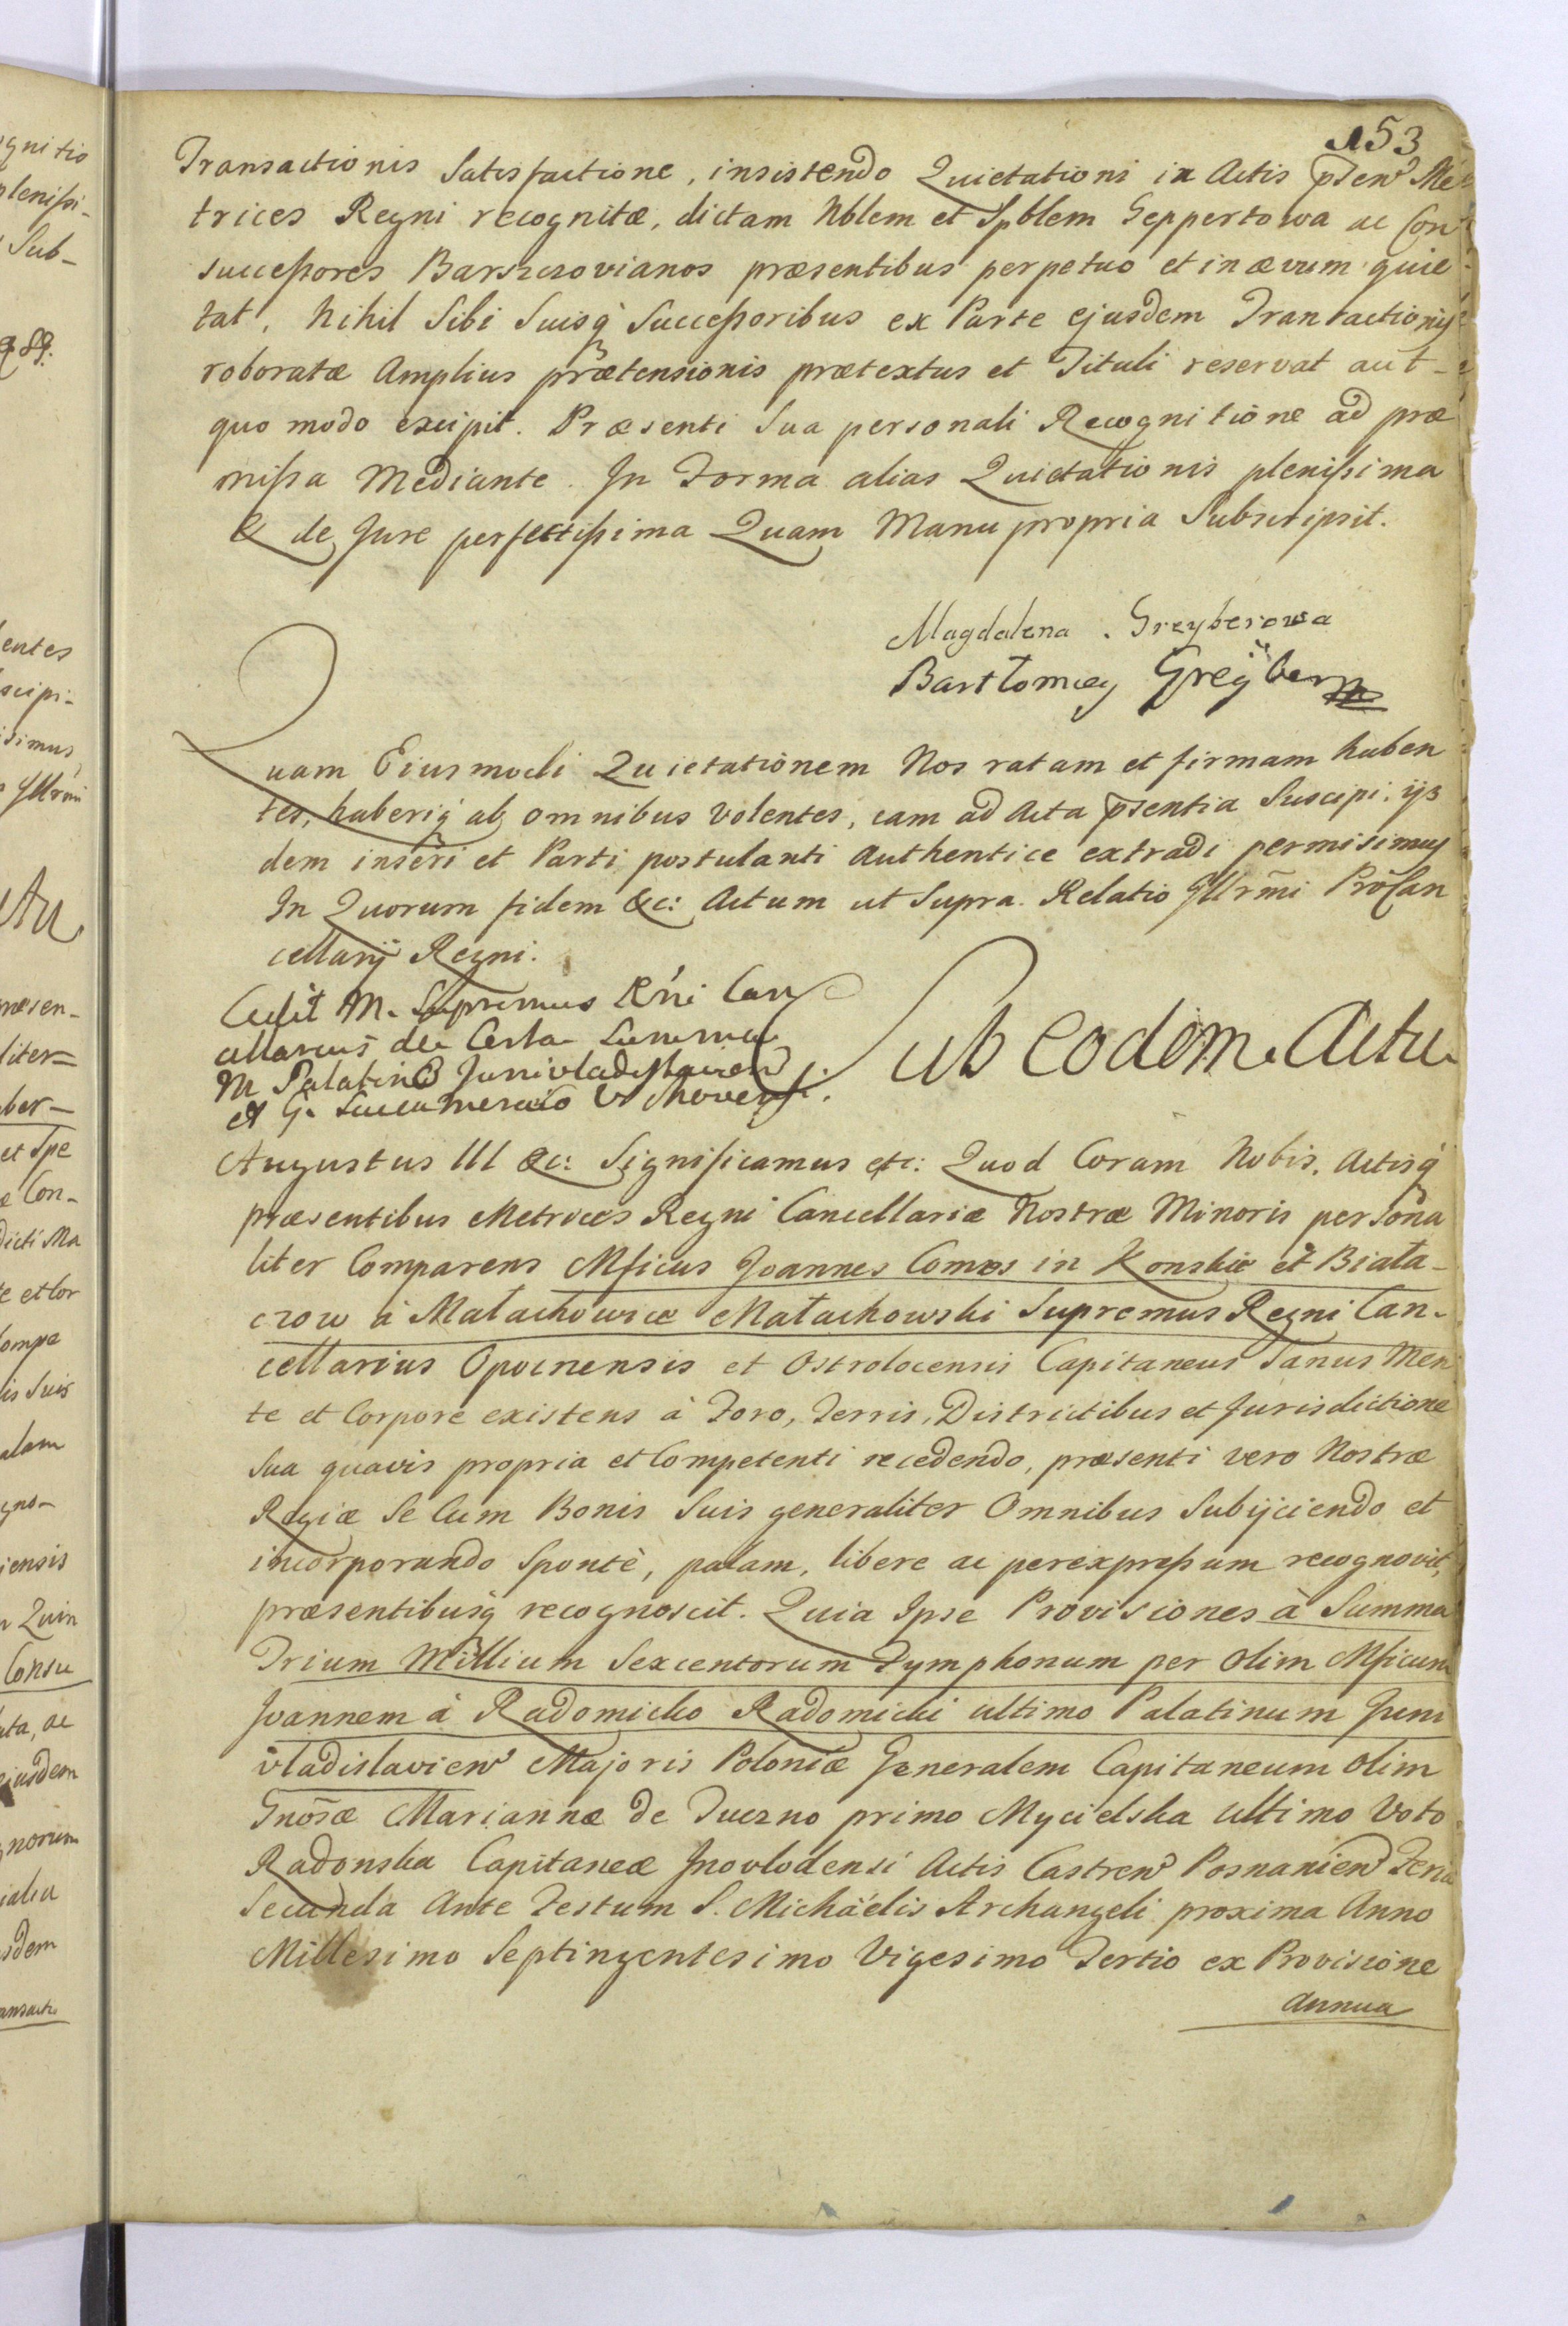 153
Transactionis Satisfactione, insistendo Quietationi in Actis pñten Me
trices Regni recognitæ, dictam Nblem et Spblem Geppertowa ac Con
successores Barszczovianos præsentibus perpetuo et in ævum quie
tat, Nihil Sibi Suisq̃ Successoribus ex Parte ejusdem Tranractionis
roboratæ Amplius prætensionis prætextus et Tituli reservat aut
quo modo excipit. Præsenti Sua personali Recognitione ad præ
missa Mediante. In Forma alias Quietationis plenissima
& de Jure perfectissima Quam Manu propria Subscripsit.
Magdalena . Greyberowa
Bartłomiey Greÿber
Quam Eiusmodi Quietationem Nos ratam et firmam haben
tes, haberiq̃ ab omnibus Volentes, eam ad Acta pñsentia Suscipi, ijs
dem inseri et Parti postulanti Authentice extradi permisimus
In Quorum fidem &c: Actum ut Supra. Relatio Illr̃mi ProCan
cellarij Regni.
Cedit M. Supremus R'ni Can
cellarius de Certa Summa
M Palatino Junivladislavien
et G. Succamerario Vschovensi.
Sub eodem Actu
Augustus III &c: Significamus etc: Quod Coram Nobis, Actisq̃
præsentibus Metrices Regni Cancellariæ Nostræ Minoris persona
liter Comparens Mficus Joannes Comes in Konskie et Biała-
czow à Małachowice Małachowski Supremus Regni Can-
cellarius Opocnensis et Ostrolocensis Capitaneus Sanus Men
te et Corpore existens à Foro, Terris, Districtibus et Jurisdictione
Sua quavis propria et Competenti recedendo, præsenti vero Nostræ
Regiæ Se Cum Bonis Suis generaliter Omnibus Subijciendo et
incorporando Spontè, palam, libere ac perexpressum recognovit,
præsentibusq̃ recognoscit. Quia Ipse Provisiones à Summa
Trium Millium Sexcentorum Tymphonum per olim Mficum
Joannem à Radomicko Radomicki ultimo Palatinum Juni
vladislavien Majoris Poloniæ Generalem Capitaneum olim
Gnõsæ Mariannæ de Tuczno primo Mycielska ultimo Voto
Radonska Capitaneæ Inovlodensi Actis Castren Posnanien Feria
Secunda Ante Festum S. Michäelis Archangeli proxima Anno
Millesimo Septingentesimo Vigesimo Tertio ex Provisione
Annua